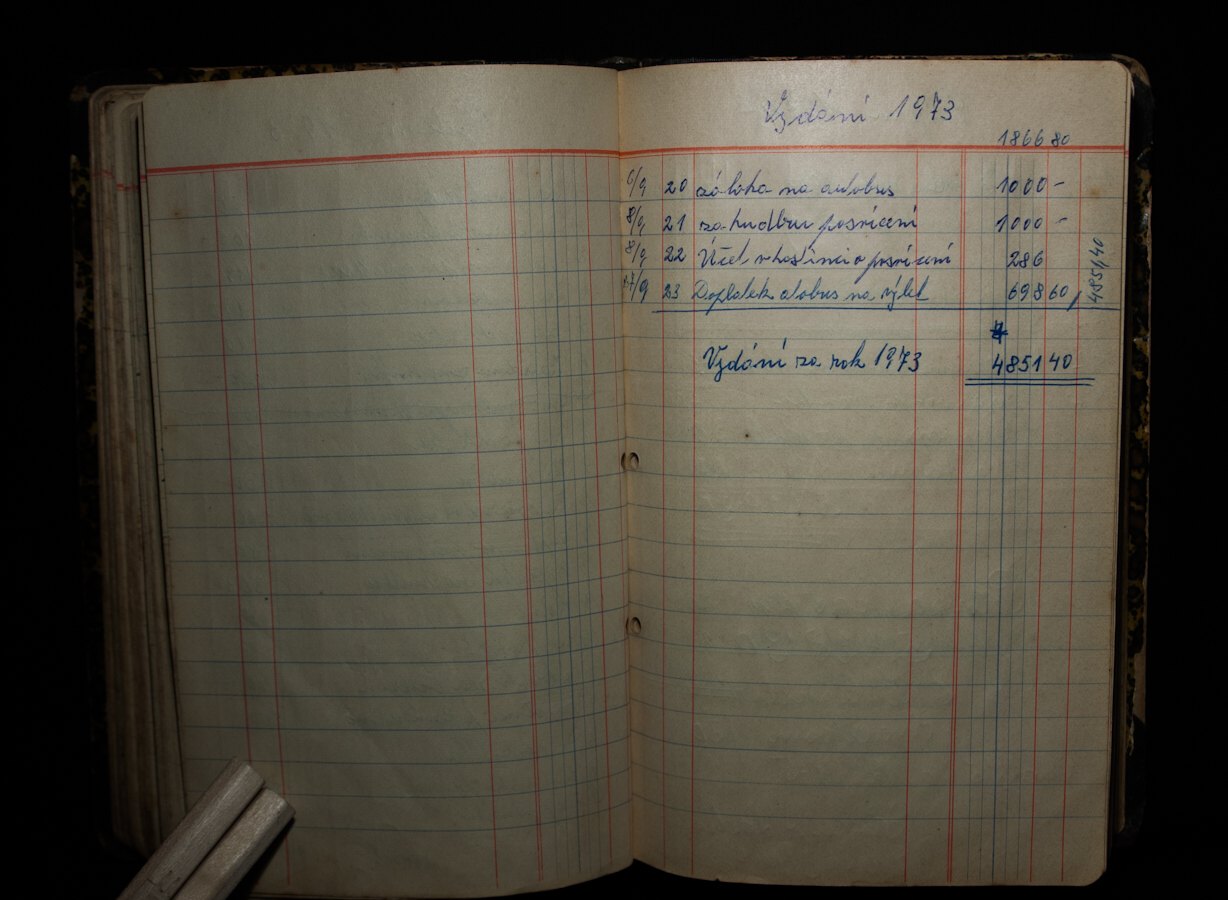 Vydání 1973
1866 80
6/9 20 záloha na autobus 1000 –
8/9 21 za hudbu posvícení 1000 –
8/9 22 Účet v hostinci o posvícení 286
17/9 23 Doplatek atobus na výlet 698 60, 4851,40
Vydání za rok 1973 4851 40